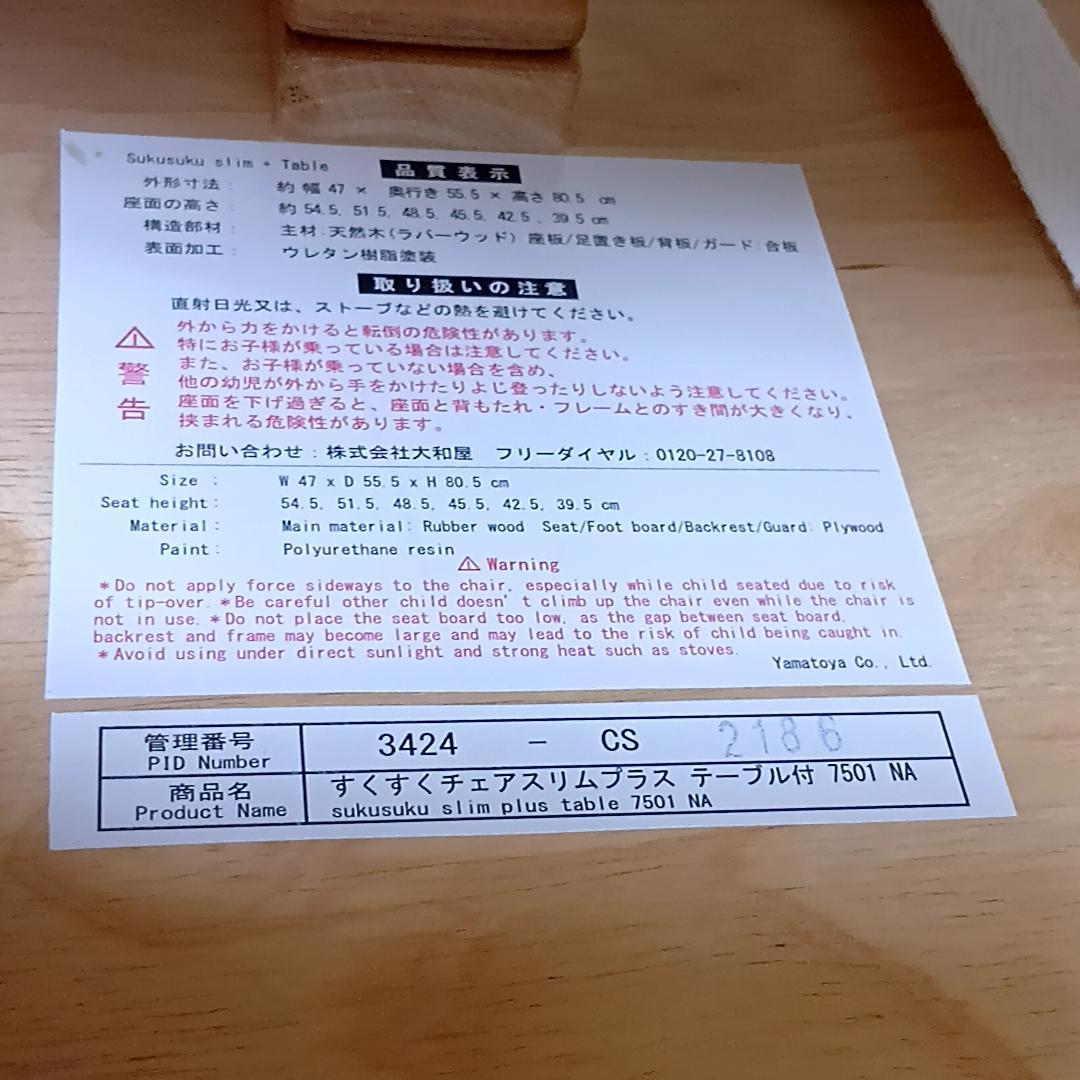 Sukusuku slim + Table
品質表示
外形寸法: 約 幅 47 × 奥行き 55.5 × 高さ 80.5 cm
座面の高さ: 約 54.5, 51.5, 48.5, 45.5, 42.5, 39.5 cm
構造部材: 主材:天然木(ラバーウッド) 座板/足置き板/背板/ガード:合板
表面加工: ウレタン樹脂塗装
取り扱いの注意
直射日光又は、ストーブなどの熱を避けてください。
⚠警告
外から力をかけると転倒の危険性があります。
特にお子様が乗っている場合は注意してください。
また、お子様が乗っていない場合を含め、
他の幼児が外から手をかけたりよじ登ったりしないよう注意してください。
座面を下げ過ぎると、座面と背もたれ・フレームとのすき間が大きくなり、
挟まれる危険性があります。
お問い合わせ:株式会社大和屋 フリーダイヤル:0120-27-8108
Size : W 47 x D 55.5 x H 80.5 cm
Seat height: 54.5, 51.5, 48.5, 45.5, 42.5, 39.5 cm
Material: Main material: Rubber wood Seat/Foot board/Backrest/Guard: Plywood
Paint: Polyurethane resin
⚠Warning
*Do not apply force sideways to the chair, especially while child seated due to risk
of tip-over. *Be careful other child doesn't climb up the chair even while the chair is
not in use. *Do not place the seat board too low, as the gap between seat board,
backrest and frame may become large and may lead to the risk of child being caught in.
*Avoid using under direct sunlight and strong heat such as stoves.
Yamatoya Co., Ltd.
管理番号 3424 - CS 2186
PID Number
商品名 すくすくチェアスリムプラス テーブル付 7501 NA
Product Name sukusuku slim plus table 7501 NA